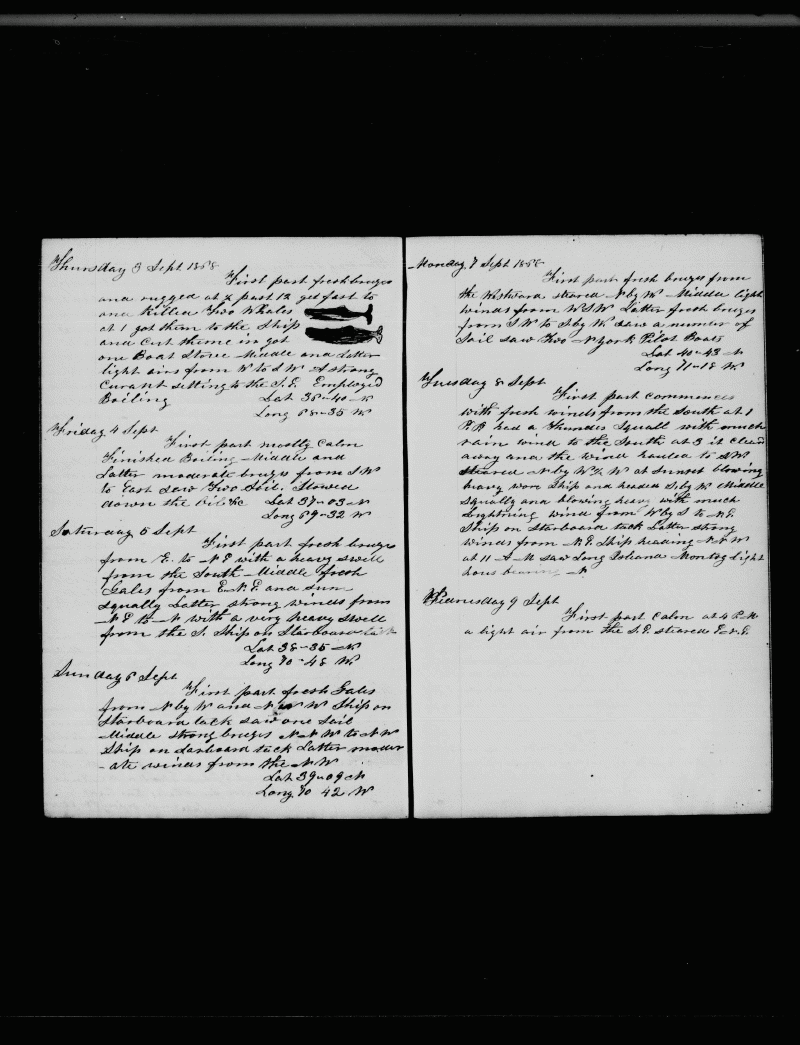 Thursday 3 Sept 1858
First part fresh brezes
and rugged at ½ past 12 got fast to
and Killed Two Whales
at 1 got them to the Ship
and Cut theme in got
one Boat Stove Middle and Latter
light airs from W to S W A strong
Curant setting to the S.E. Employed
Boiling Lat 38-40-N
Long 68-35 W
Friday 4 Sept
First part mostly Calm
Finished Boiling Middle and
Latter moderate brezes from S W
to East saw Two Sail. Stowed
down the Oil &c Lat 39-03-N
Long 69-32 W
Saturday 5 Sept
First part fresh brezes
from E. to N E with a heavy swell
from the South Middle fresh
Gales from E.N.E. and sum
squally Latter strong winds from
N E to N with a very heavy swell
from the S. Ship on Starboard tack
Lat 38-35-N
Long 70-48 W
Sunday 6 Sept
First part fresh Gales
from N by W and N W Ship on
Starboard tack saw one Sail
Middle strong brezes N N W to N W
Ship on Larboard tack Latter moder
-ate winds from the N W
Lat 39-09 N
Long 70 42 W
Monday 7 Sept 1858
First part fresh brezes from
the Westward steared N by W Middle light
winds from W S W Latter fresh brezes
from S W to S by W saw a numer of
Sail saw Two N york Pilot Boats
Lat 40-43-N
Long 71-18 W
Tuesday 8 Sept
First part commences
with fresh winds from the South at 1
P.M had a Thunder Squall with much
rain wind to the South at 3 it Cleard
away and the wind hauled to S W
steared N by W ½ W at Sunset blowing
heavy wore Ship and headed S by W Middle
squally and blowing heavy with much
Lightning wind from W by S to N.E.
Ship on Starboard tack Latter strong
winds from N.E. Ship heading N N W
at 11 A-M saw Long Island Montog Light
hous bearing N
Wednesday 9 Sept
First part Calm at 4 P.M
a light air from the S.E. steared E.N.E.